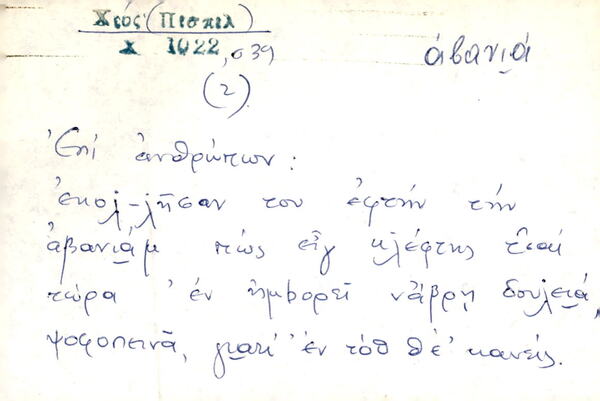 Χιός (Πισπιλ)
χ 1022, σ 39
ἀβανιά
(2)
Ἐπί ἀνθρώπων :
ἐκολ-λῆσαν του ἐφτήν τήν
ἀβανιάμ πώς εἶγ κλέφτης τσαί
τώρα 'έν ἠμβορεῖ νἄβρῃ δουλειά,
ψοφοπεινᾶ, γιατί 'έν τόθ θέ' κανείς.